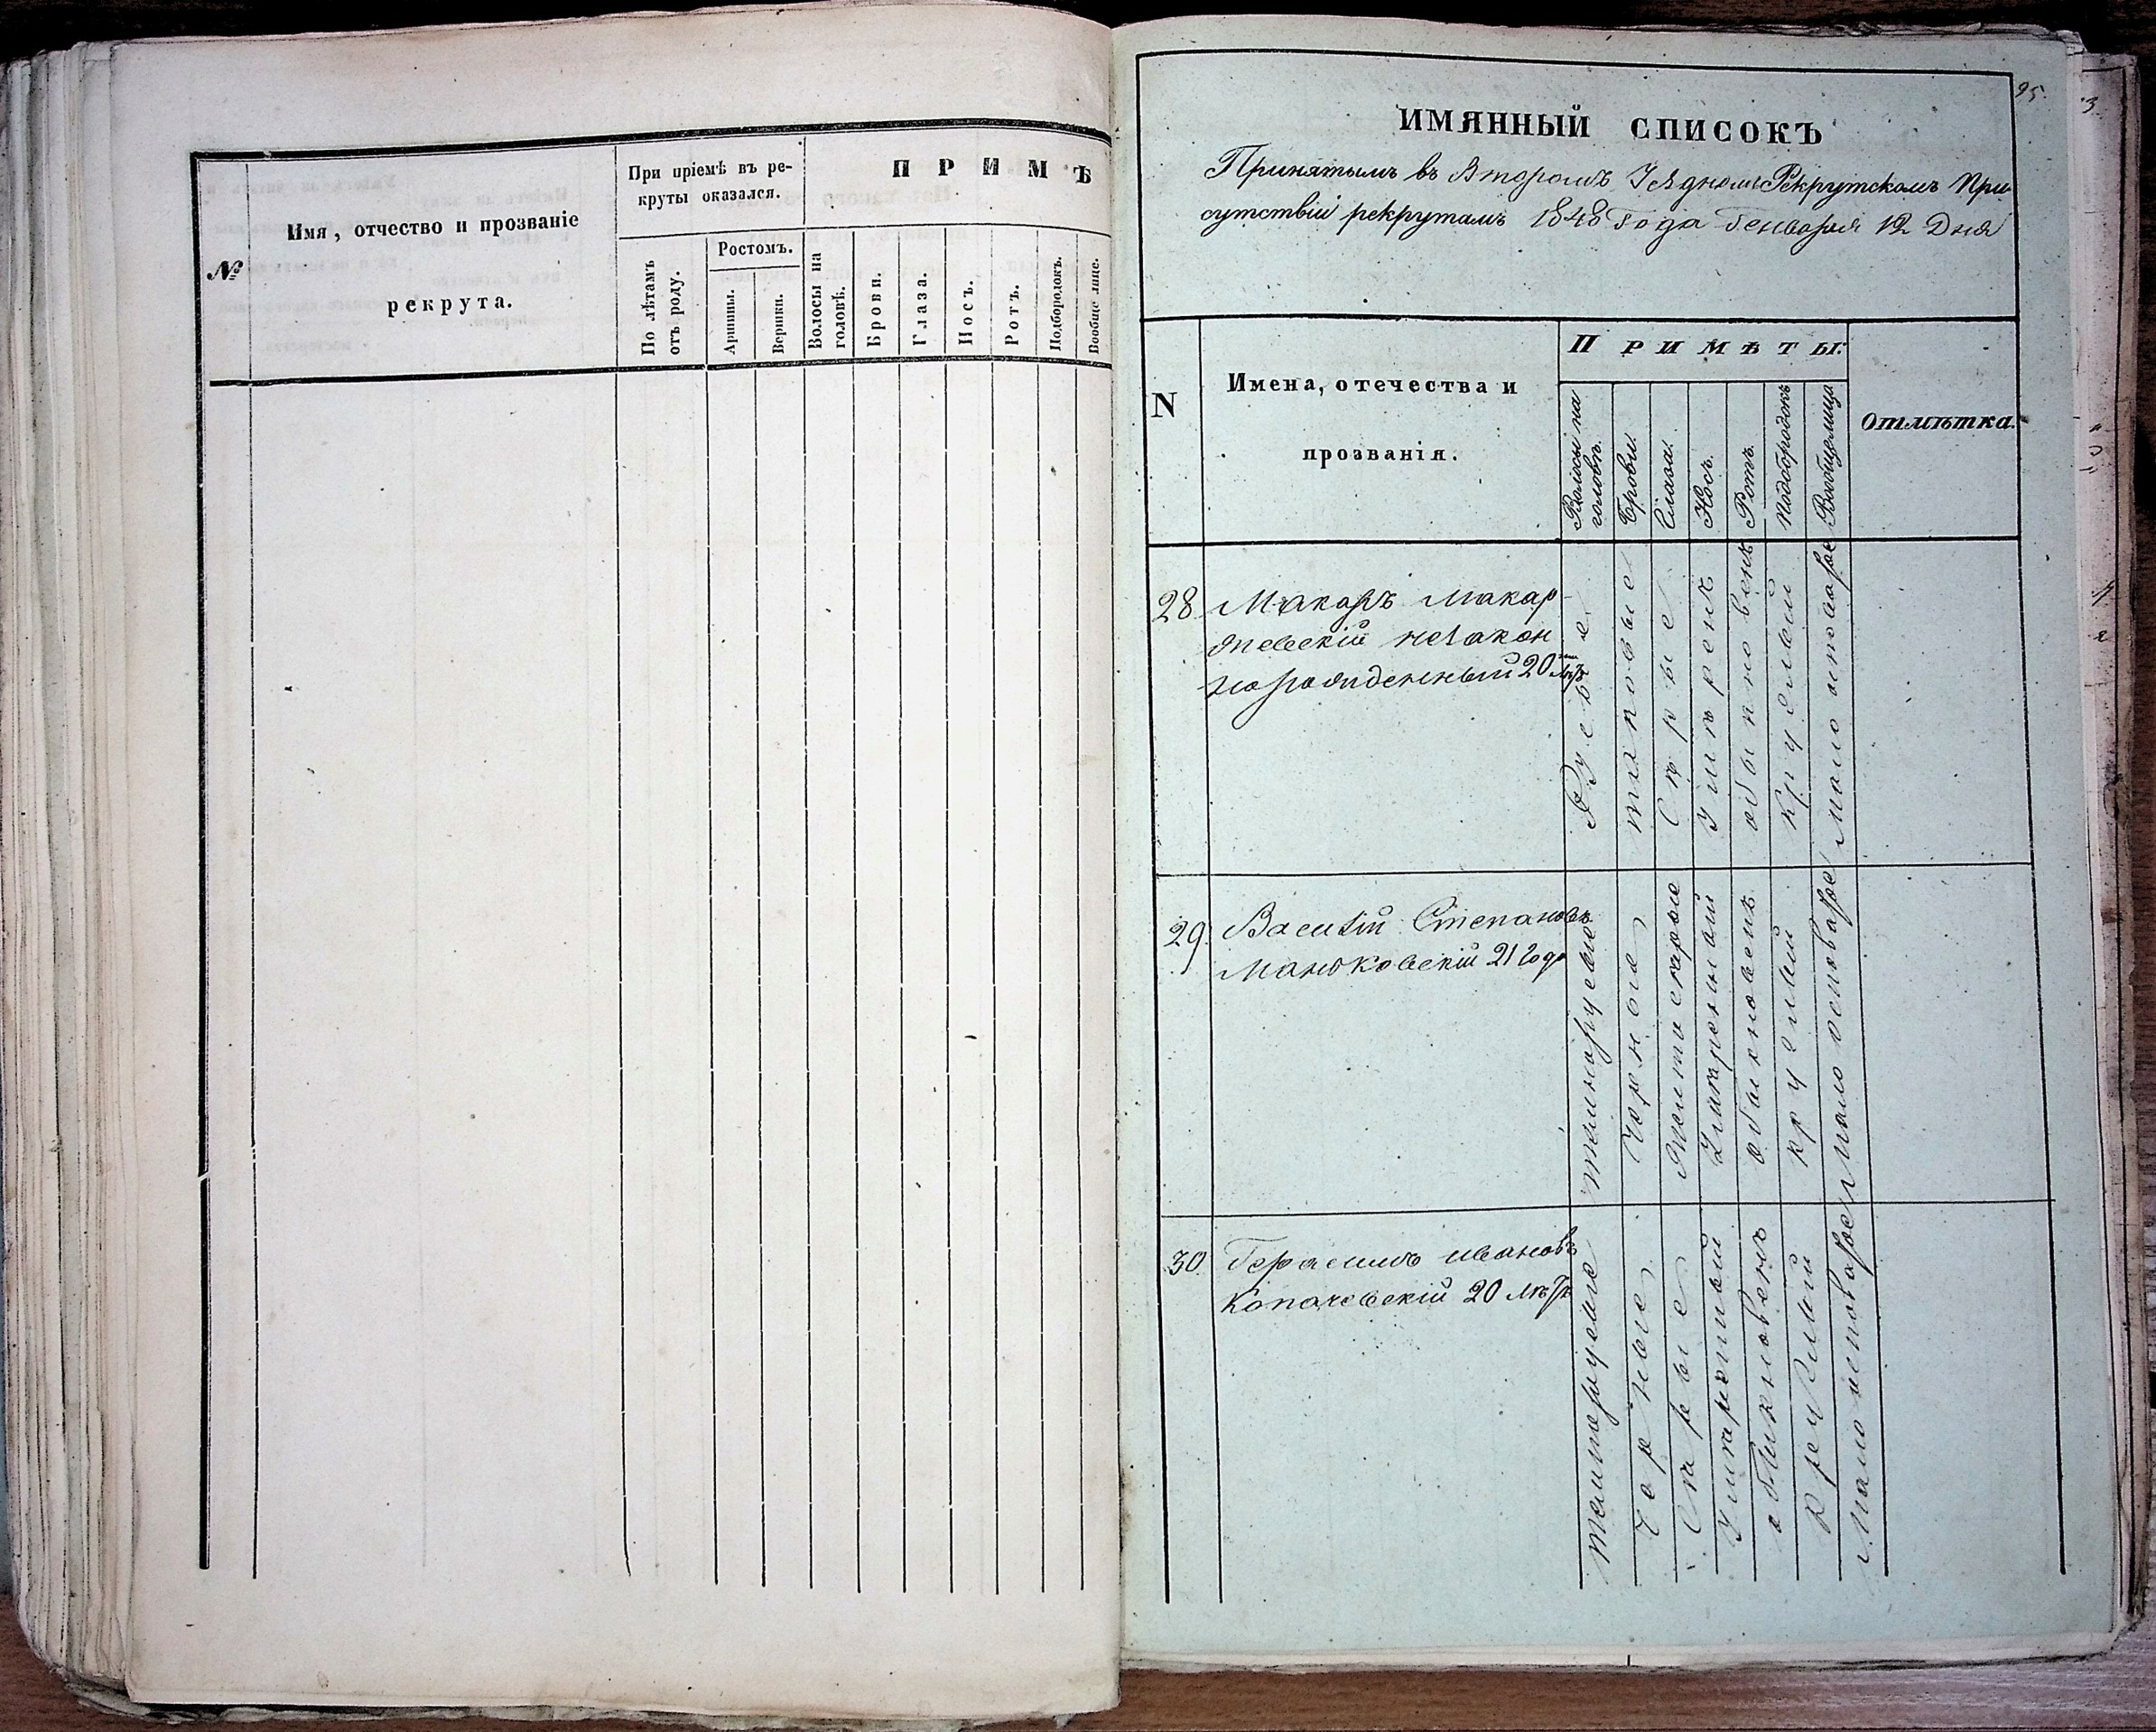 №
Имя, отчество и прозваніе
рекрута.
При пріемѣ въ ре-
круты оказался.
По лѣтамъ
отъ роду.
Ростомъ.
Аршины.
Вершки.
П Р И М Ѣ
Волосы на
головѣ.
Брови.
Глаза.
Носъ.
Ротъ.
Подбородокъ.
Вообще лице.
95.
ИМЯННЫЙ СПИСОКЪ
Принятымъ въ Второмъ Уѣдномъ Рекрутскомъ При-
сутствіи рекрутамъ 1848 Года Генваря 12 Дня
N
Имена, отечества и
прозванія.
П Р И М Ѣ Т Ы:
Волосы на
головѣ.
Брови.
Глаза.
Носъ.
Ротъ.
Подбородокъ
Вообще лица
Отмѣтка.
28
Макаръ Макар-
незакон
норожденный 20 лѣтъ
Русые
Сѣрые
умѣренъ
обыкновенъ
круглый
мало остаро
29.
Василій Степановъ
Маньковскій 21 года
темнорусые
Черные
умѣренный
обыкновенъ
круглый
Мало
30.
Герасимъ Ивановъ
Копачевскій 20 лѣтъ
темнорусые
Черные
Сѣрые
Умѣренный
обыкновенъ
Круглый
Мало